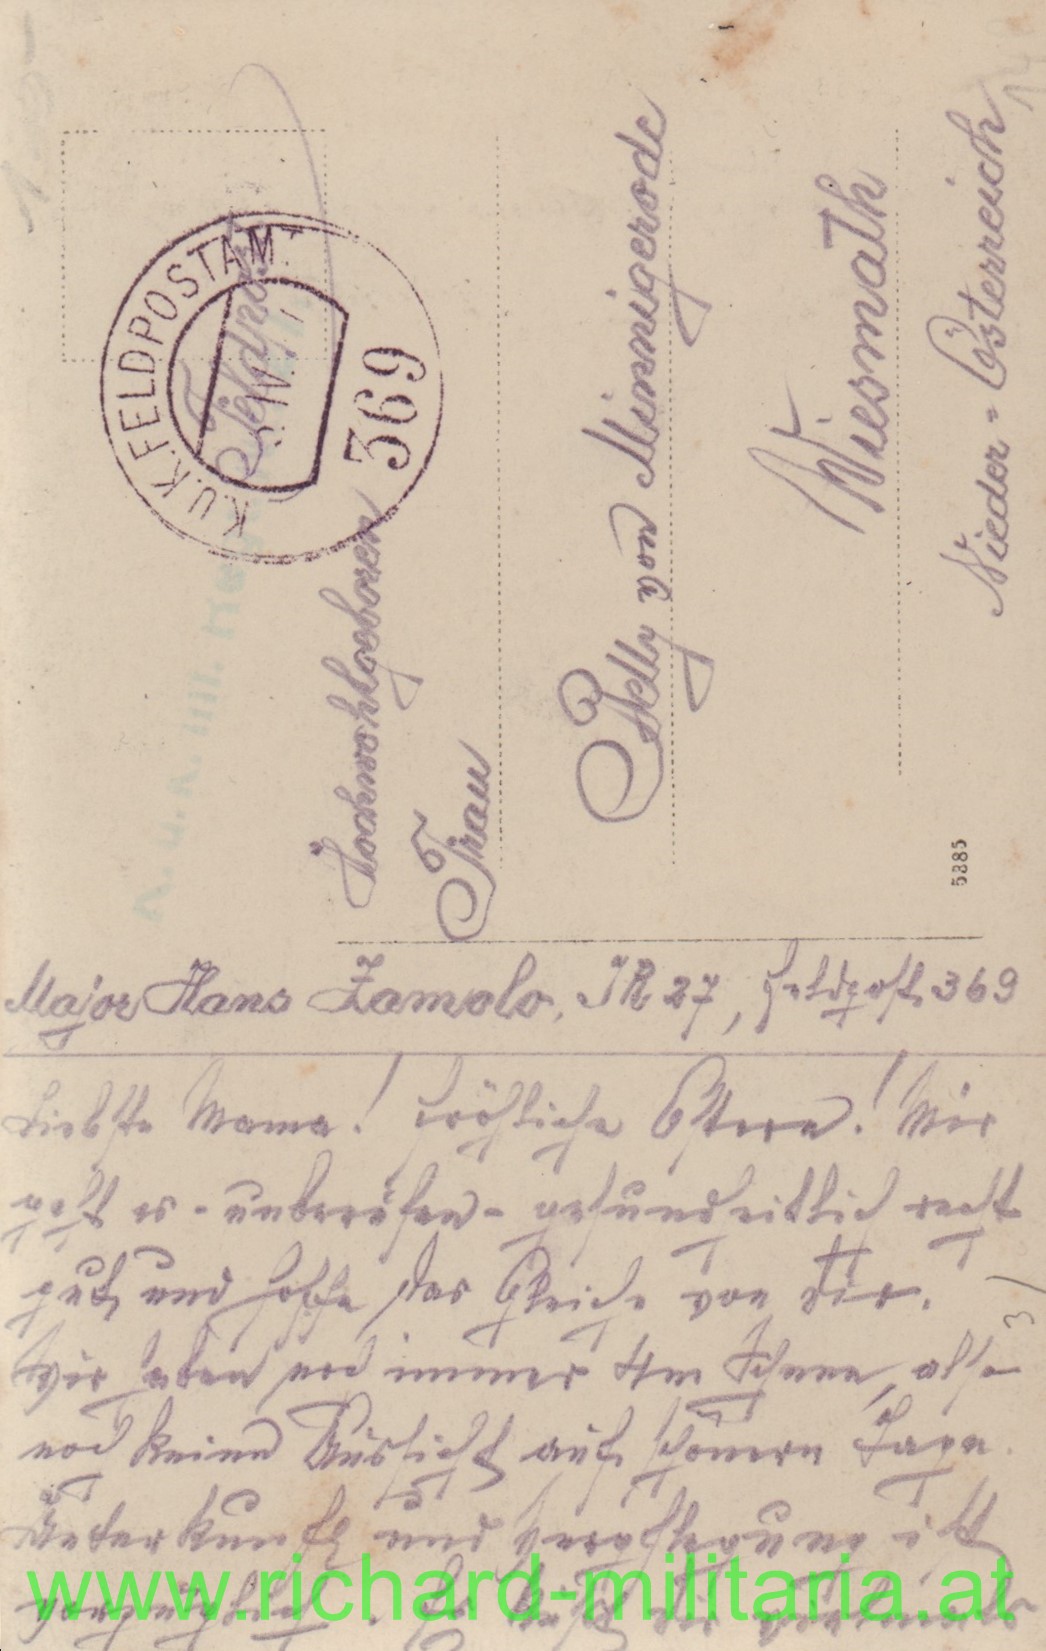 K.U.K. FELDPOSTAMT
369
IV.
Feldpost
K. u. K. Mil.
Hochwohlgeboren
Frau
Nelly von Minnigerode
Wiesmath
Nieder-Österreich
5385
Major Hans Zamolo, IR 27, Feldpost 369
Liebste Mama! Fröhliche Ostern! Mir
geht es - unberufen - gesundheitlich recht
gut und hoffe das Gleiche von Dir.
Wir haben noch immer 4m Schnee, also
noch keine Aussicht auf schönere Tage.
Unterkunft und Verpflegung ist
vorzüglich. Es küßt Dir
www.richard-militaria.at